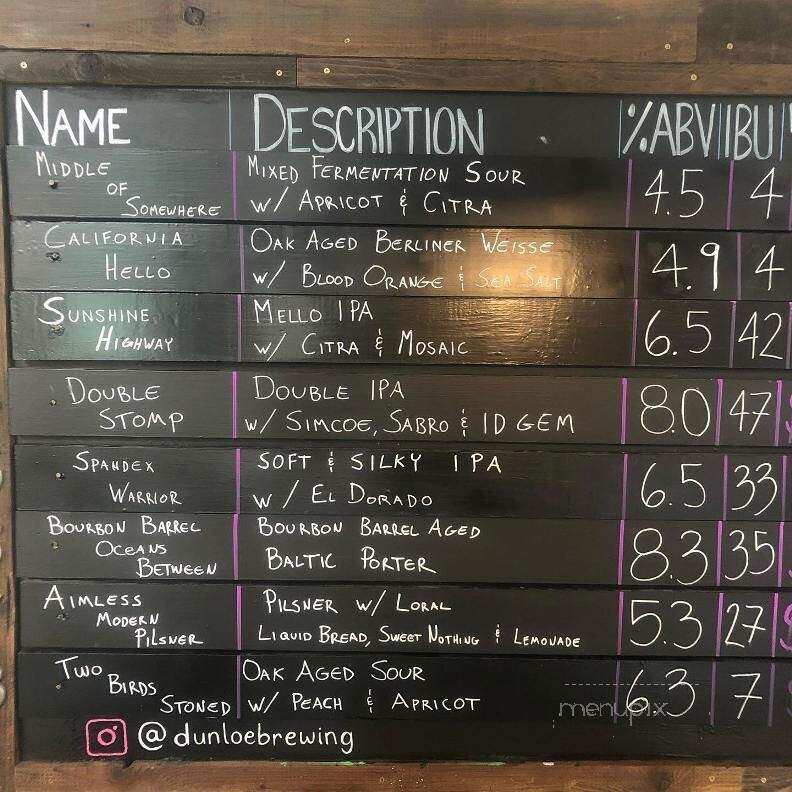 NAME DESCRIPTION %ABV IBU
MIDDLE OF SOMEWHERE
MIXED FERMENTATION SOUR
W/ APRICOT & CITRA
4.5 4
CALIFORNIA HELLO
OAK AGED BERLINER WEISSE
W/ BLOOD ORANGE & SEA SALT
4.9 4
SUNSHINE HIGHWAY
MELLO IPA
W/ CITRA & MOSAIC
6.5 42
DOUBLE STOMP
DOUBLE IPA
W/ SIMCOE, SABRO & ID GEM
8.0 47
SPANDEX WARRIOR
SOFT & SILKY IPA
W/ EL DORADO
6.5 33
BOURBON BARREL OCEANS BETWEEN
BOURBON BARREL AGED
BALTIC PORTER
8.3 35
AIMLESS MODERN PILSNER
PILSNER W/ LORAL
LIQUID BREAD, SWEET NOTHING & LEMONADE
5.3 27
TWO BIRDS STONED
OAK AGED SOUR
W/ PEACH & APRICOT
6.3 7
@dunloebrewing
menupix